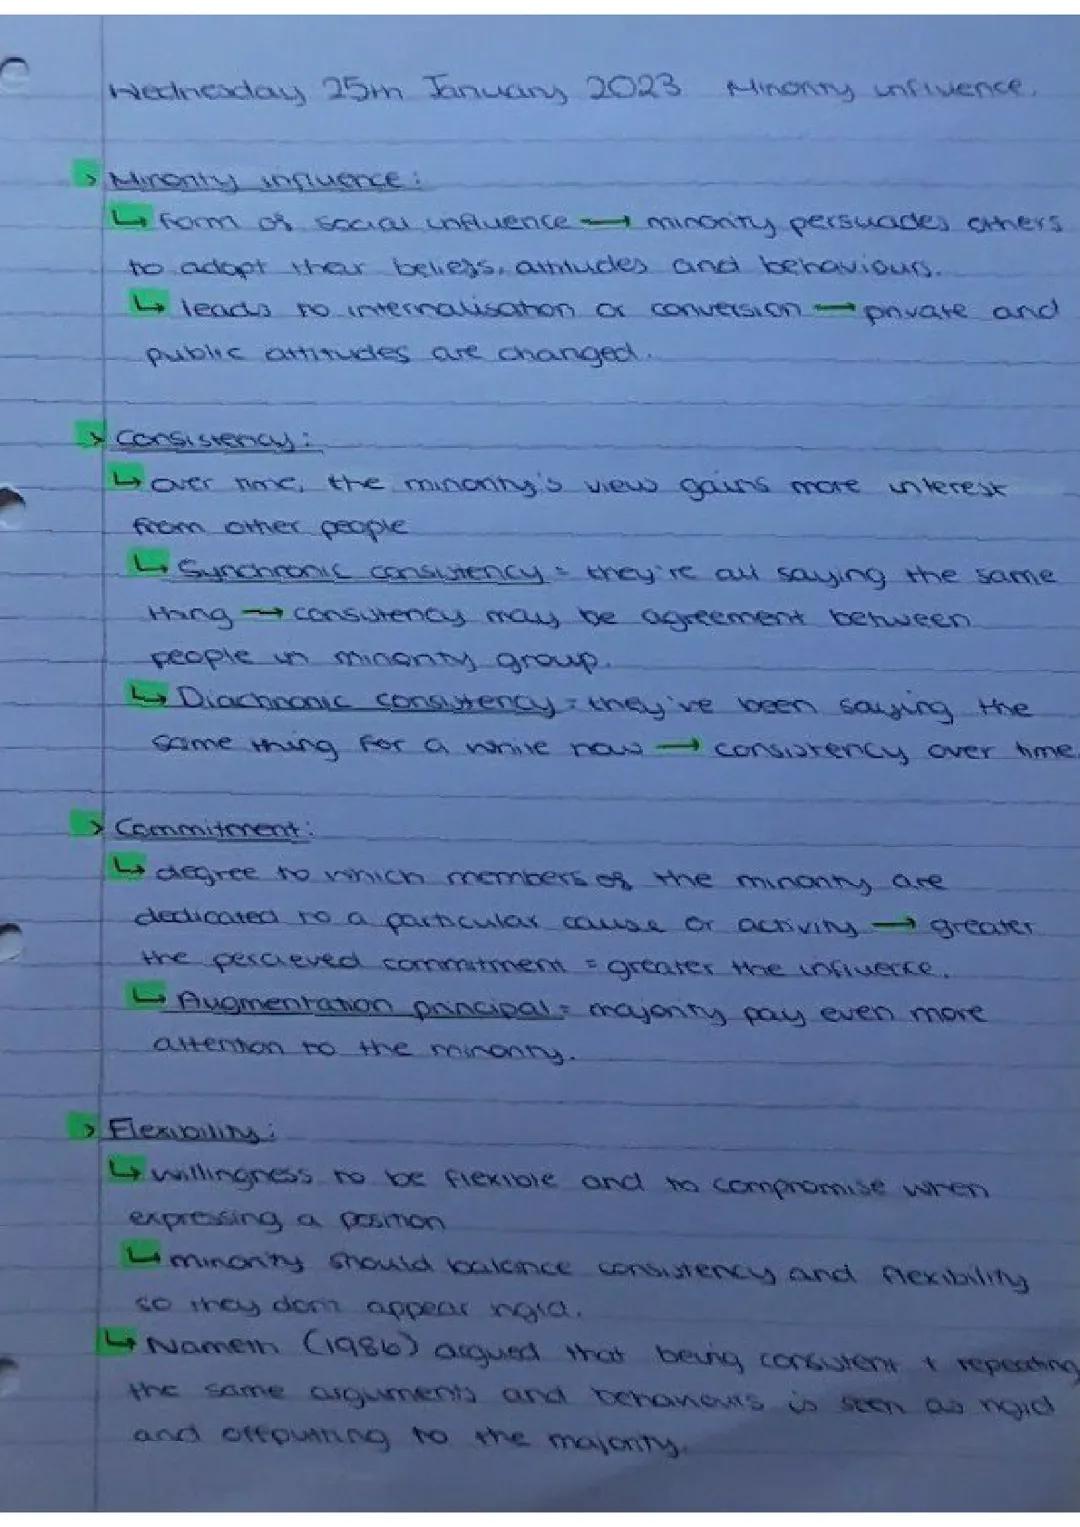 Wednesday 25th January 2023 Minority influence.
> Minority influence:
↳ form of social influence → minority persuades others
to adopt their beliefs, attitudes and behaviours.
↳ leads to internalisation or conversion → private and
public attitudes are changed.
> Consistency:
↳ over time, the minority's view gains more interest
from other people
↳ Synchronic consistency = they're all saying the same
thing → consistency may be agreement between
people in minority group.
↳ Diachronic consistency = they've been saying the
same thing for a while now → consistency over time.
> Commitment:
↳ degree to which members of the minority are
dedicated to a particular cause or activity → greater
the percieved commitment = greater the influence.
↳ Augmentation principal = majority pay even more
attention to the minority.
> Flexibility:
↳ willingness to be flexible and to compromise when
expressing a position
↳ minority should balance consistency and flexibility
so they don't appear rigid.
↳ Nameth (1986) argued that being consistent + repeating
the same arguments and behaviours is seen as rigid
and offputting to the majority.